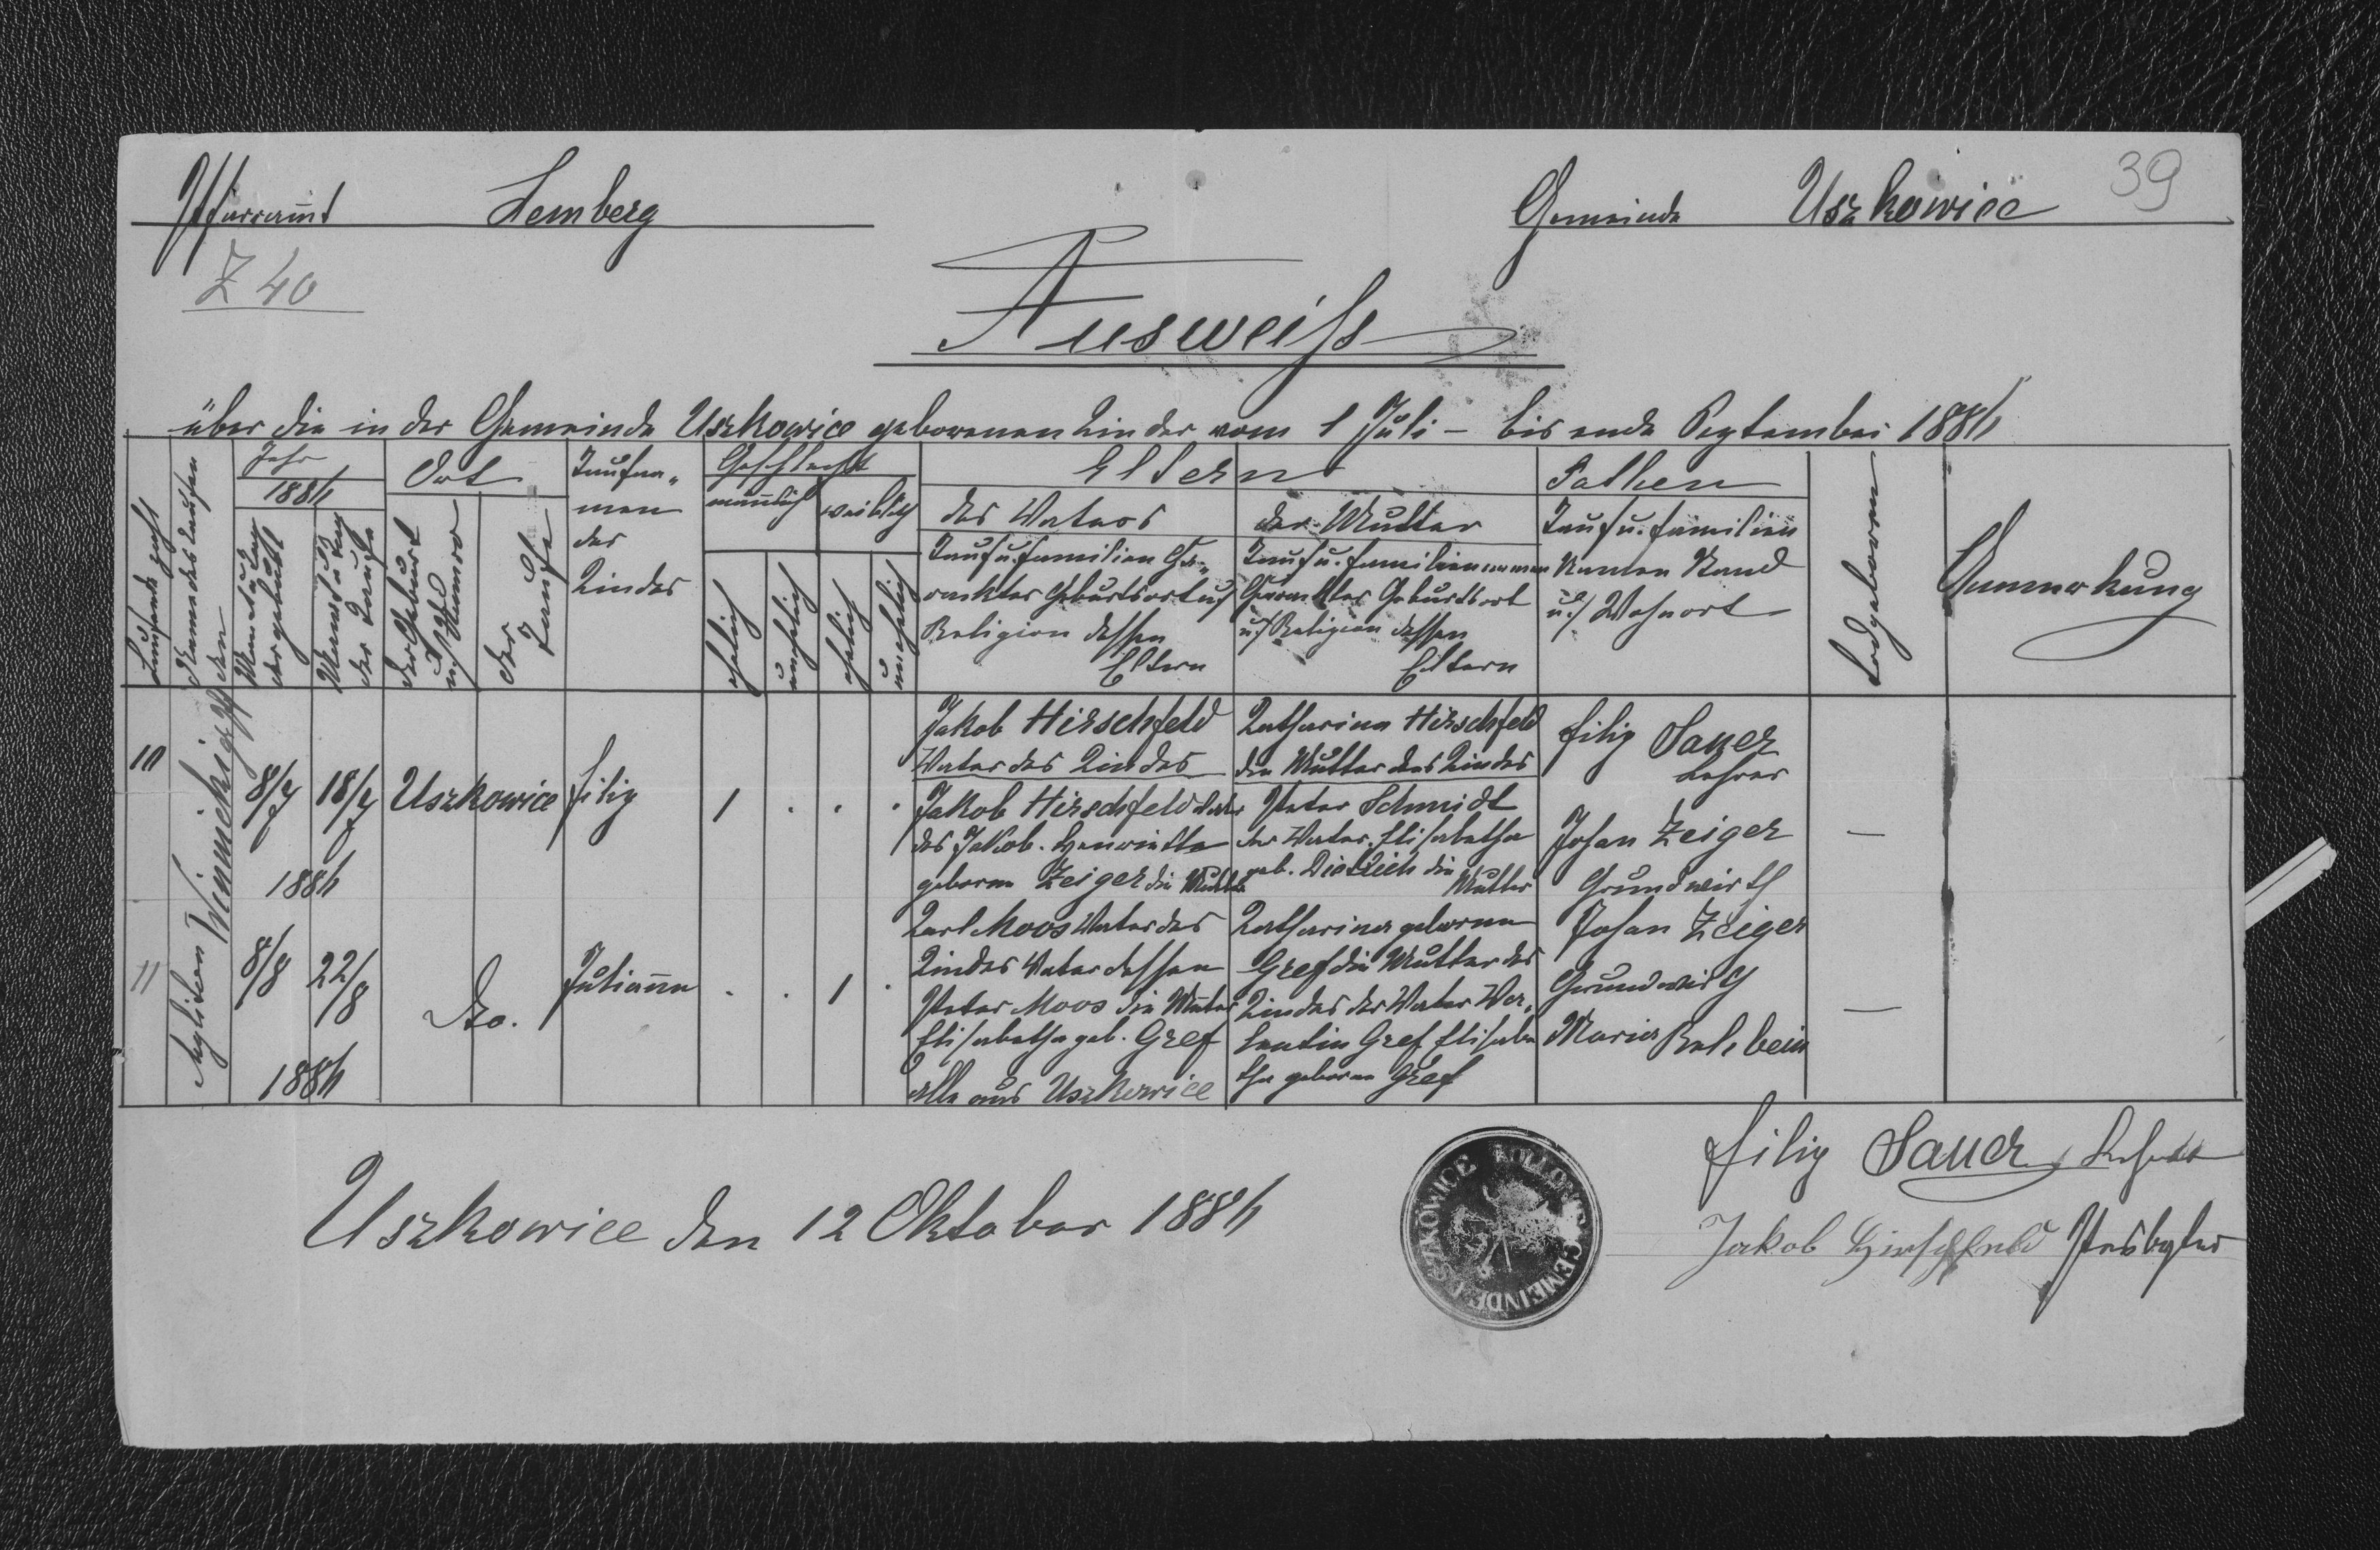 Pfarramt Lemberg
Gemeinde Uszkowice
39
Z 40
Ausweiss
über die in der Gemeinde Uszkowice geborenen Kinder vom 1 Juli – bis ende September 1884
Laufende Zahl
Namen des Taufenden
Jahr
1884
Monat u Tag der geburt
Monat u Tag der Taufe
Ort
der Geburt u/ Numero
der Taufe
Taufna„
men
des
Kindes
Geschlecht
männlich
weiblich
ehelich
unehelich
ehelich
unehelich
Eltern
des Vaters
Tauf u. familien Ca„
rackter Geburtsort u/
Religion dessen
Eltern
der Mutter
Tauf u. familiennamen
Carackter Geburtsort
u/ Religion dessen
Eltern
Pathen
Tauf u. familien
Namen Stand
u/ Wohnort
Todgeboren
Anmerkung
10
8/7
18/7
1884
Uszkowice
filip
1 . . .
Jakob Hirschfeld
Vater des Kindes
Jakob Hirschfeld Vater
des Jakob. Henriette
geborne Zeiger die Mutter
Katharina Hirschfeld
die Mutter des Kindes
Peter Schmidt
der Vater. Elisabetha
geb. Dietrich die
Mutter
filip Sauer
Lehrer
Johan Zeiger
Grundwirth
—
11
8/8
22/8
1884
Dto.
Julianna
. . 1 .
Karl Moos Vater des
Kindes Vater dessen
Peter Moos die Mutter
Elisabetha geb. Gref
alle aus Uszkowice
Katharina geborne
Gref die Mutter des
Kindes der Vater Va„
lentin Gref Elisabe
tha geborne Gref
Johan Zeiger
Grundwirth
Maria
—
Uszkowice den 12 Oktober 1884
USZKOWICE KOLLONIE GEMEINDE
filip Sauer, Lehrer
Jakob Hirschfeld Presbyter